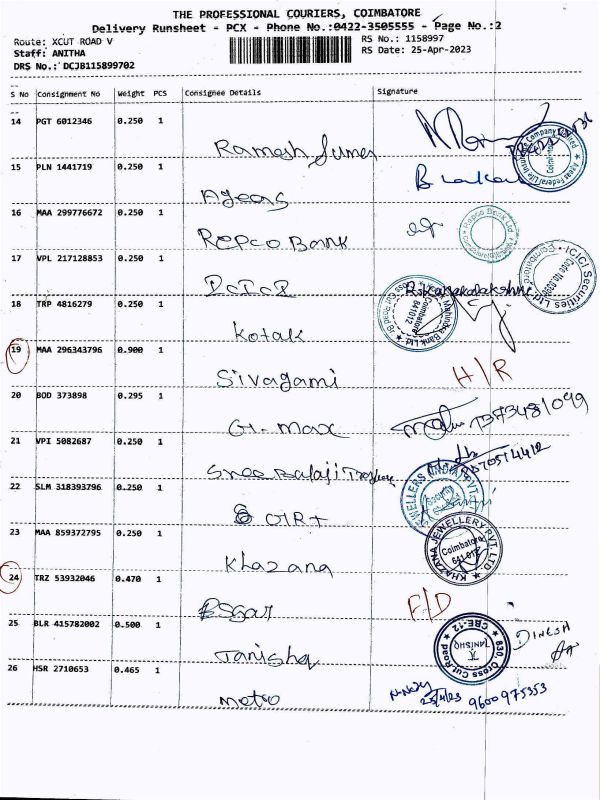 THE PROFESSIONAL COURIERS, COIMBATORE
Delivery Runsheet - PCX - Phone No.:0422-3505555 - Page No.:2
Route: XCUT ROAD V RS No.: 1158997
Staff: ANITHA RS Date: 25-Apr-2023
DRS No.: DCJB115899702
S No Consignment No Weight PCS Consignee Details Signature
14 PGT 6012346 0.250 1
Ramesh
15 PLN 1441719 0.250 1
Ageas
16 MAA 299776672 0.250 1
Repco Bank
17 VPL 217128853 0.250 1
18 TRP 4816279 0.250 1
Kotak
19 MAA 296343796 0.900 1
Sivagami H/R
20 BOD 373898 0.295 1
G1-max
21 VPI 5082687 0.250 1
Sree Balaji
22 SLM 318393796 0.250 1
23 MAA 859372795 0.250 1
Khazana
KHAZANA JEWELLERY PVT. LTD
Coimbatore
24 TRZ 53932046 0.470 1
F/D
25 BLR 415782002 0.500 1
Tanishq
TANISHQ
830, Cross Cut Road
CBE-12
DINESH
26 HSR 2710653 0.465 1
Metro
25/4/23 9600975353